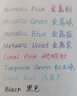 Metallic Pink 金属粉
Metallic Green 金属绿
Metallic Blue 金属蓝
Metallic Violet 金属紫
Coral Pink 珊瑚粉
Turquoise Green
Black 黑色